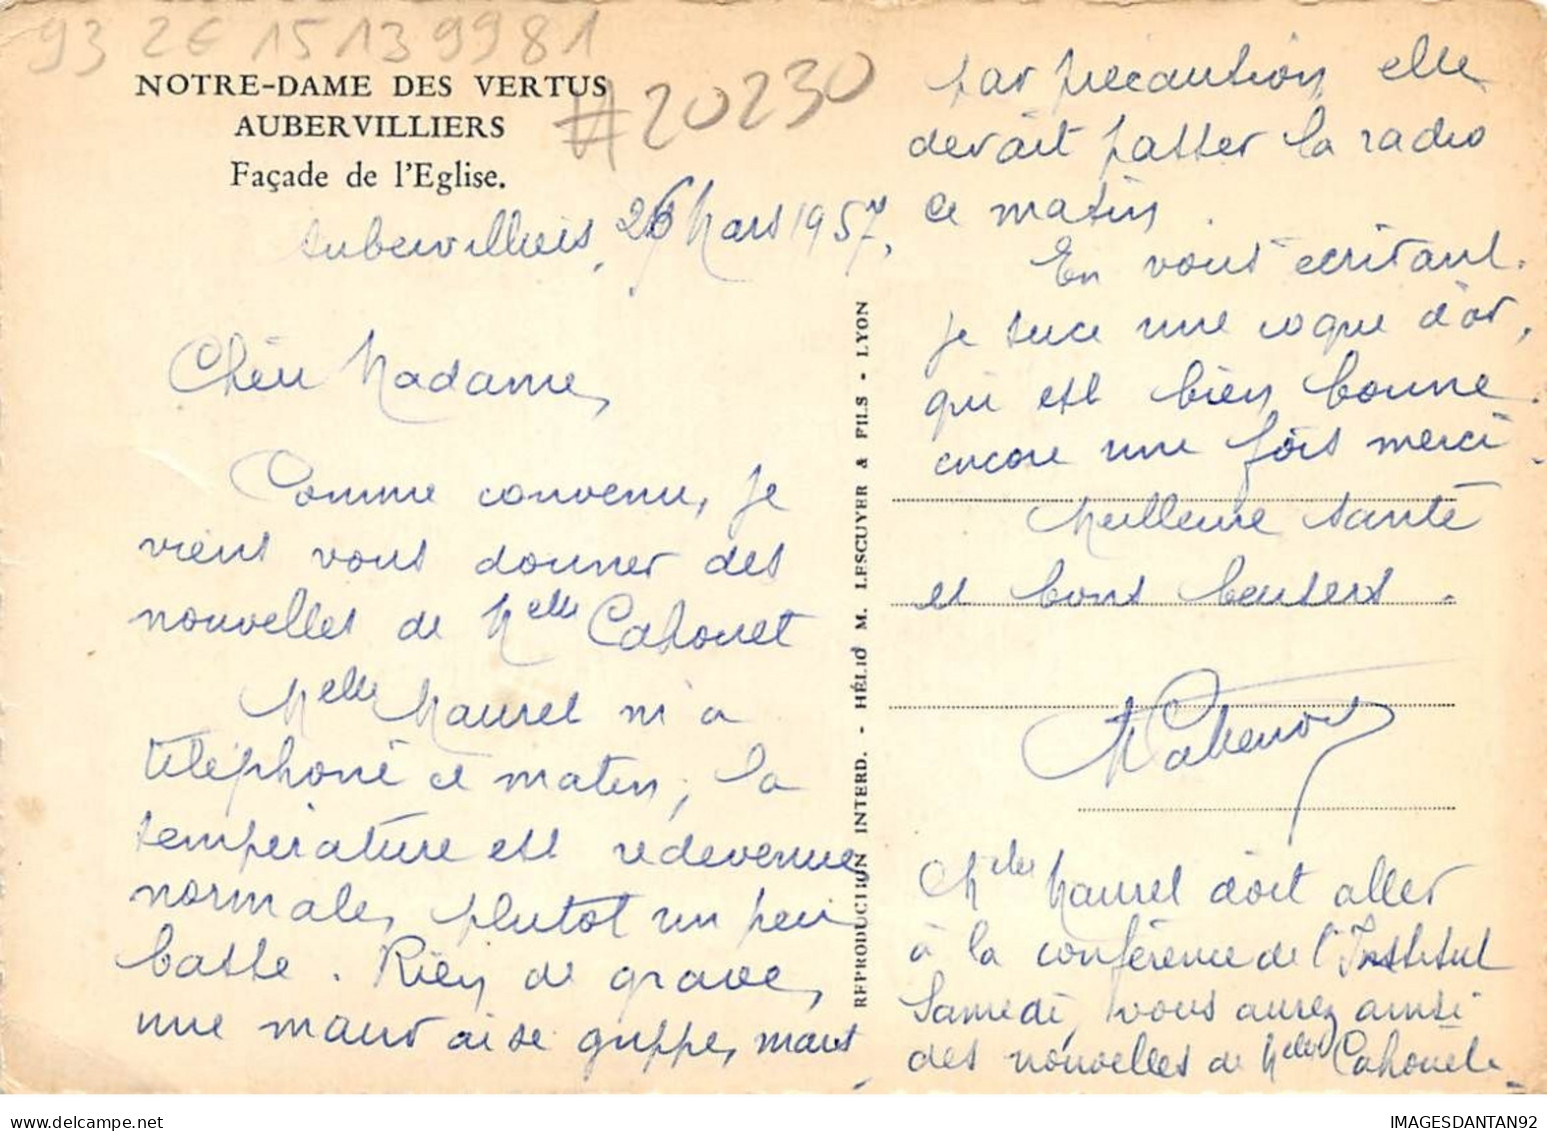 93 2€ 15139981
#20230
NOTRE-DAME DES VERTUS
AUBERVILLIERS
Façade de l'Eglise.
Aubervilliers, 26 Mars 1957,
Chère Madame,
Comme convenu, je
viens vous donner des
nouvelles de Melle Cahouet
Melle Maurel m'a
téléphoné ce matin, la
température est redevenue
normale, plutot un peu
basse. Rien de grave,
une mauvaise grippe, mais
par précaution elle
devait passer la radio
ce matin.
En vous écrivant
je suce une coque d'or,
qui est bien bonne
encore une fois merci.
Meilleure santé
et bons baisers.
Melle Maurel doit aller
à la conférence de l'Institut
Samedi, vous aurez ainsi
des nouvelles de Melle Cahouet.
REPRODUCTION INTERD. - HÉLIO M. LESCUYER & FILS - LYON
IMAGESDANTAN92